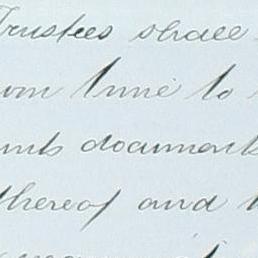 Trustees shall
om time to
nts documents
thereof and